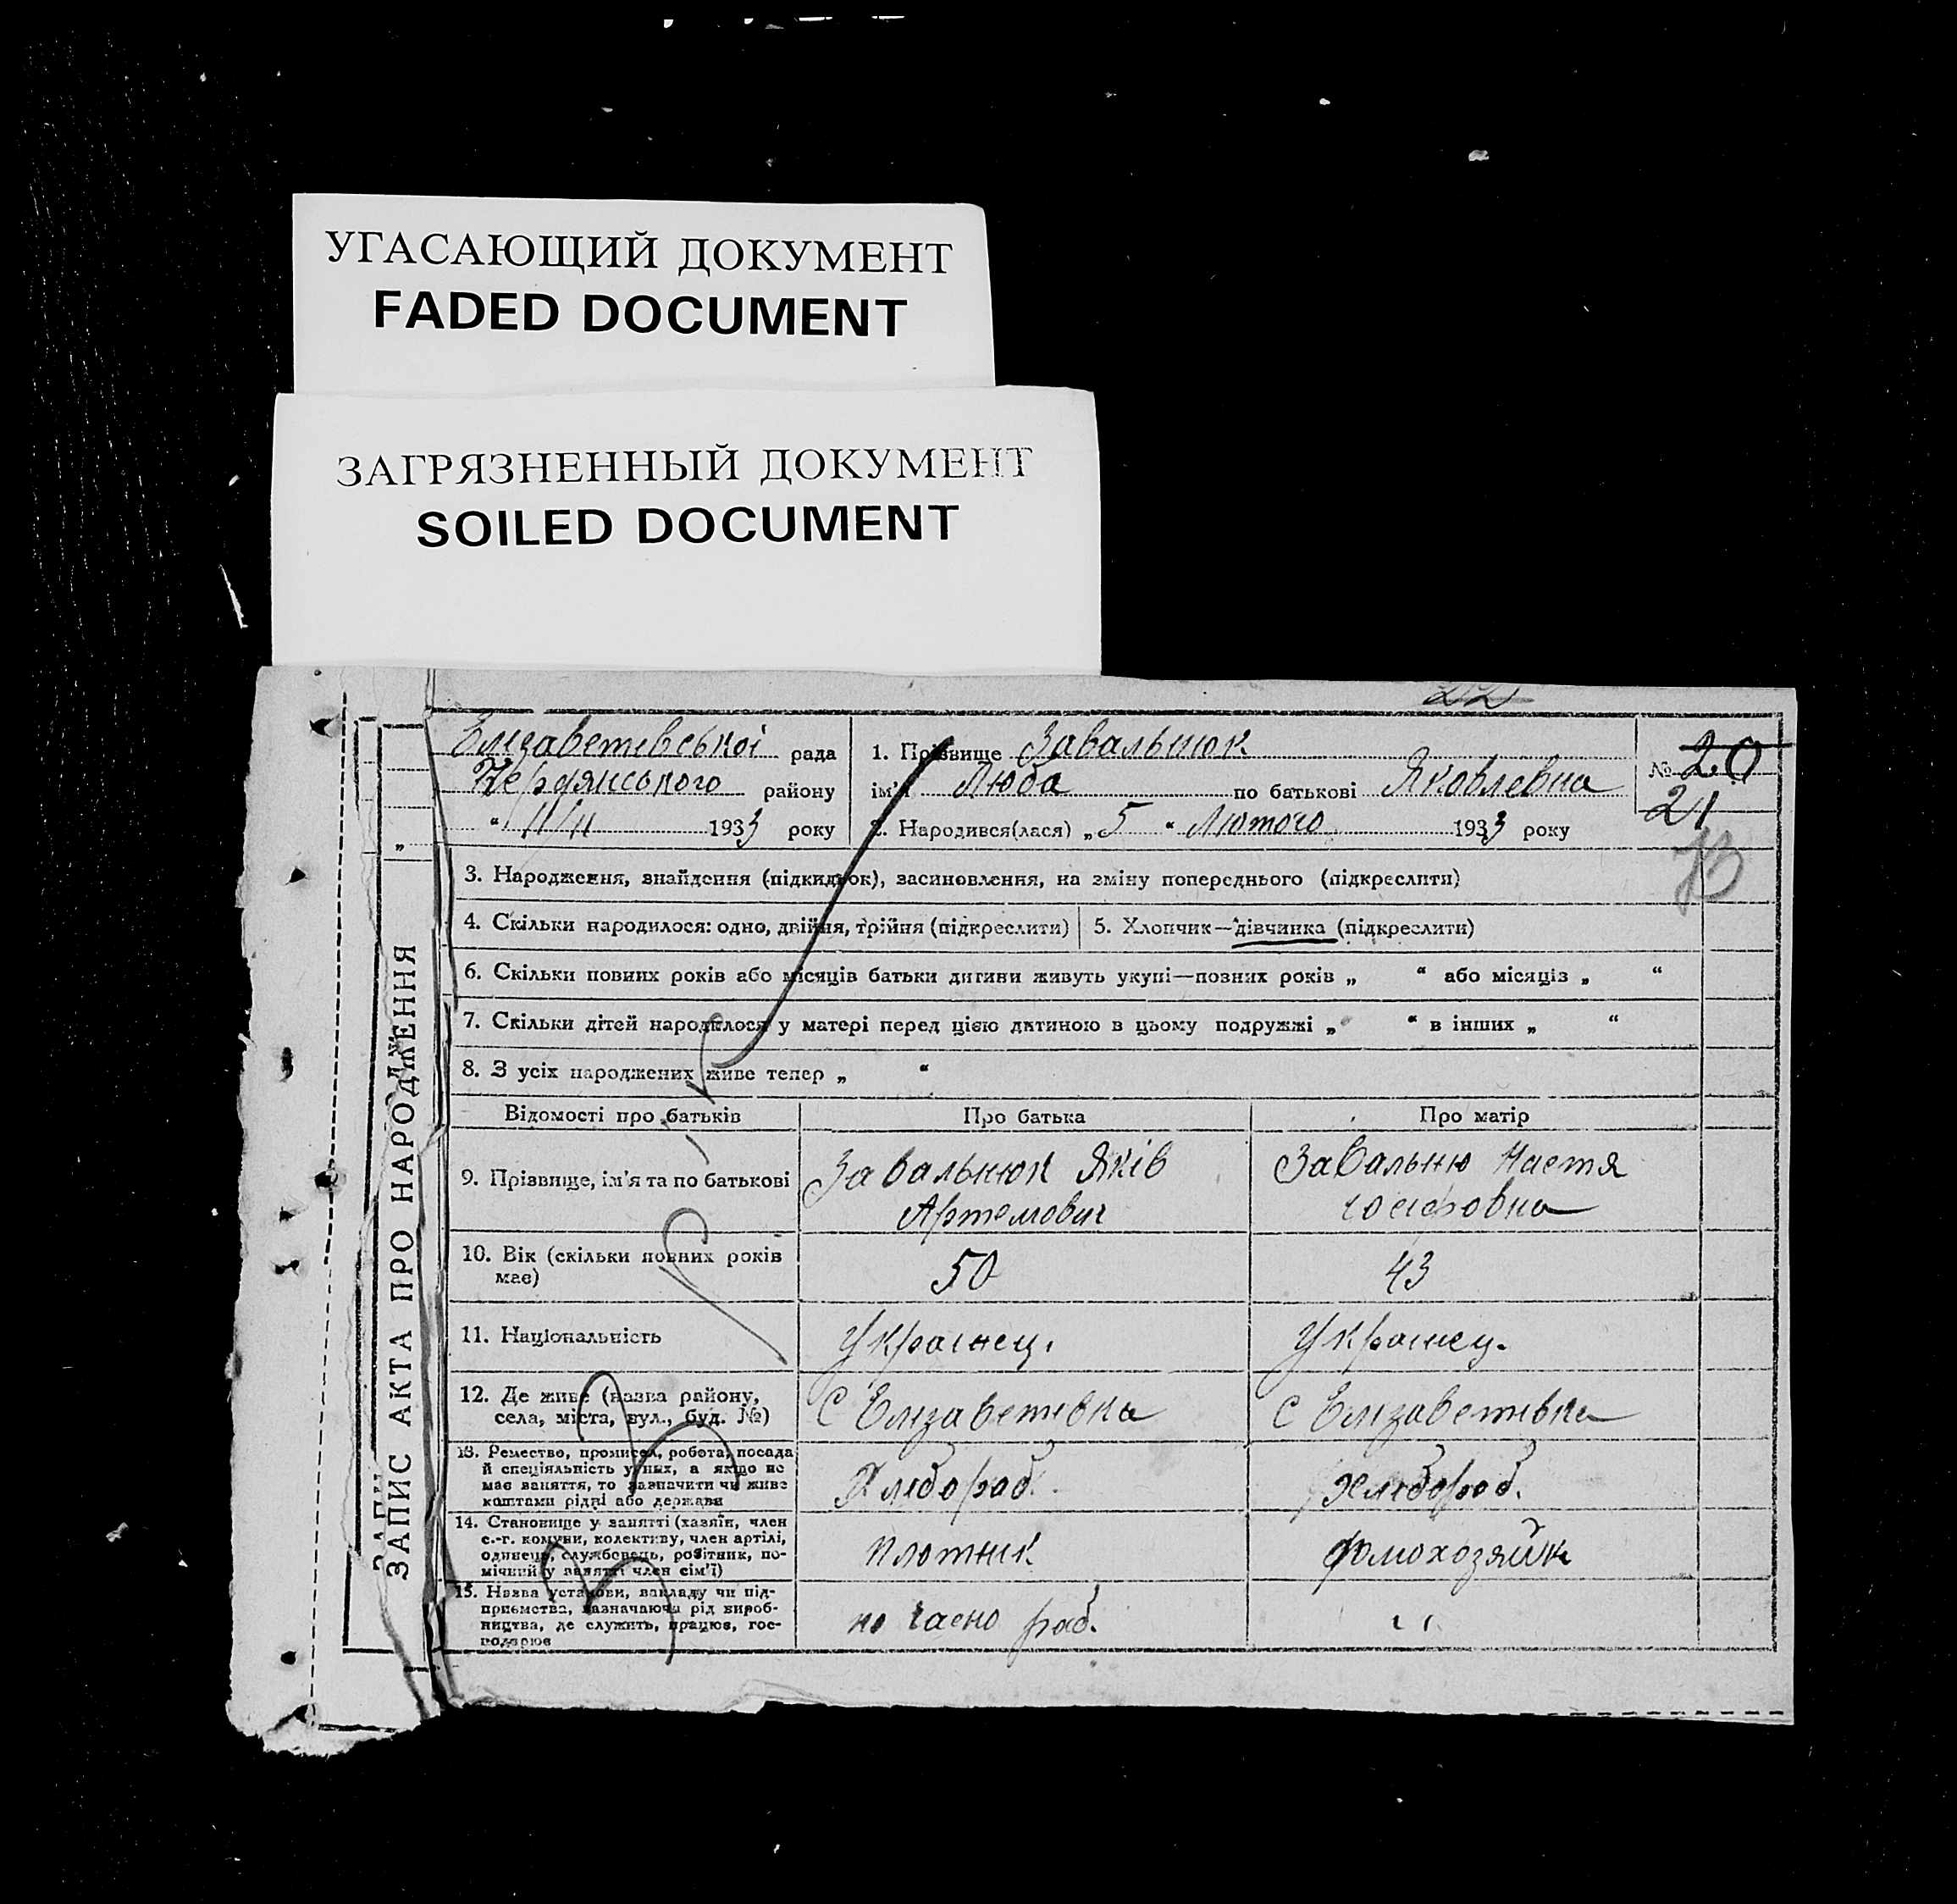 УГАСАЮЩИЙ ДОКУМЕНТ
FADED DOCUMENT
ЗАГРЯЗНЕННЫЙ ДОКУМЕНТ
SOILED DOCUMENT
22
Елізаветівської рада
району
" 11/II 1933 року
1. Прізвище Завальнюк
ім'я Люба по батькові Яковлевна
2. Народився(лася) „ 5 " Лютого 1933 року
№ 20
21
73
3. Народження, знайдення (підкидьок), засиновлення, на зміну попереднього (підкреслити)
4. Скільки народилося: одно, двійня, трійня (підкреслити)
5. Хлопчик—дівчинка (підкреслити)
6. Скільки повних років або місяців батьки дитини живуть укупі—повних років „ " або місяців „ "
7. Скільки дітей народилося у матері перед цією дитиною в цьому подружжі „ " в інших „ "
8. З усіх народжених живе тепер „ "
Відомості про батьків
Про батька
Про матір
9. Прізвище, ім'я та по батькові
Завальнюк Яків
Артемович
Завальню Настя
Юсифовна
10. Вік (скільки повних років
має)
50
43
11. Національність
Украінец.
Украінец.
12. Де живе (назва району,
села, міста, вул., буд. №)
С Елізаветівка
С Елізаветівка
13. Ремество, промисел, робота, посада
й спеціяльність у них, а якщо не
має заняття, то зазначити чи живе
коштами рідні або держави
Хлібороб.
Хлібороб.
14. Становище у занятті (хазяїн, член
с.-г. комуни, колективу, член артілі,
одинець, службовець, робітник, по-
мічний у занятті член сім'ї)
плотник
домохозяйк
15. Назва установи, закладу чи під-
приємства, зазначаючи рід вироб-
ництва, де служить, працює, гос-
подарює
раб.
ЗАПИС АКТА ПРО НАРОДЖЕННЯ